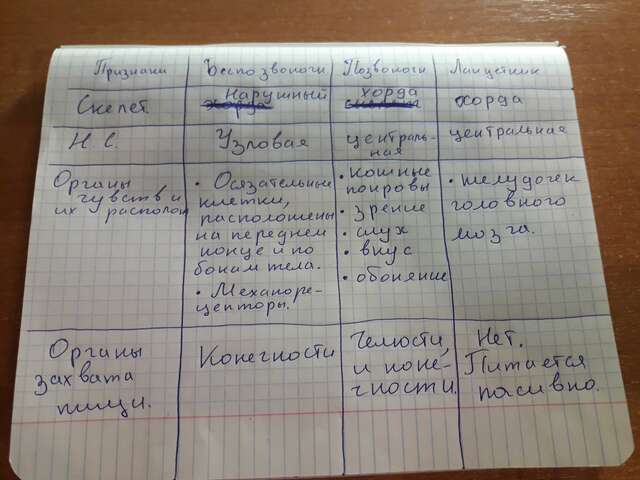 Признаки
Беспозвоноги
Позвоноги
Ланцетник
Скелет
нарушный
хорда
хорда
хорда
Н. С.
Узловая
централь-
ная
центральная
Органы
чувств и
их располож
• Осязательные
клетки,
расположены
на переднем
конце и по
бокам тела.
• Механоре-
цепторы.
• кожные
покровы
• зрение
• слух
• вкус
• обоняние
• желудочек
головного
мозга.
Органы
захвата
пищи.
Конегности
Челюсти,
и коне-
гности.
Нет.
Питается
пасивно.